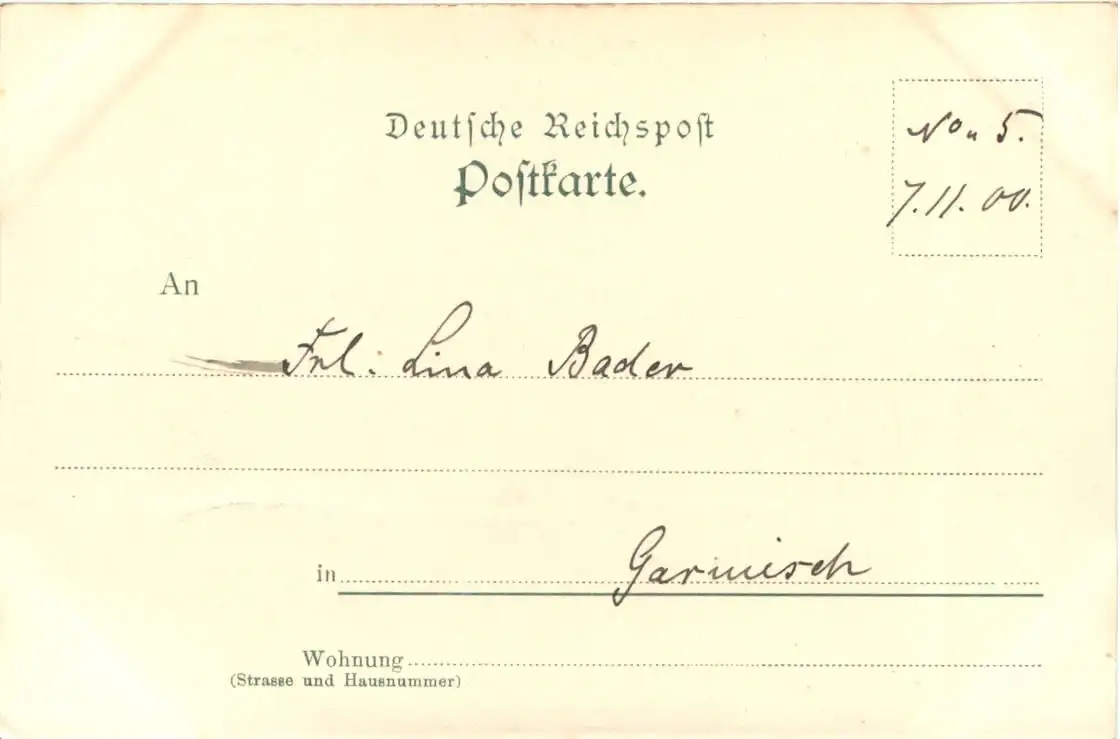 Deutsche Reichspost
Postkarte.
No 5.
7.11.00.
An
Frl. Lina Bader
in Garmisch
Wohnung
(Strasse und Hausnummer)